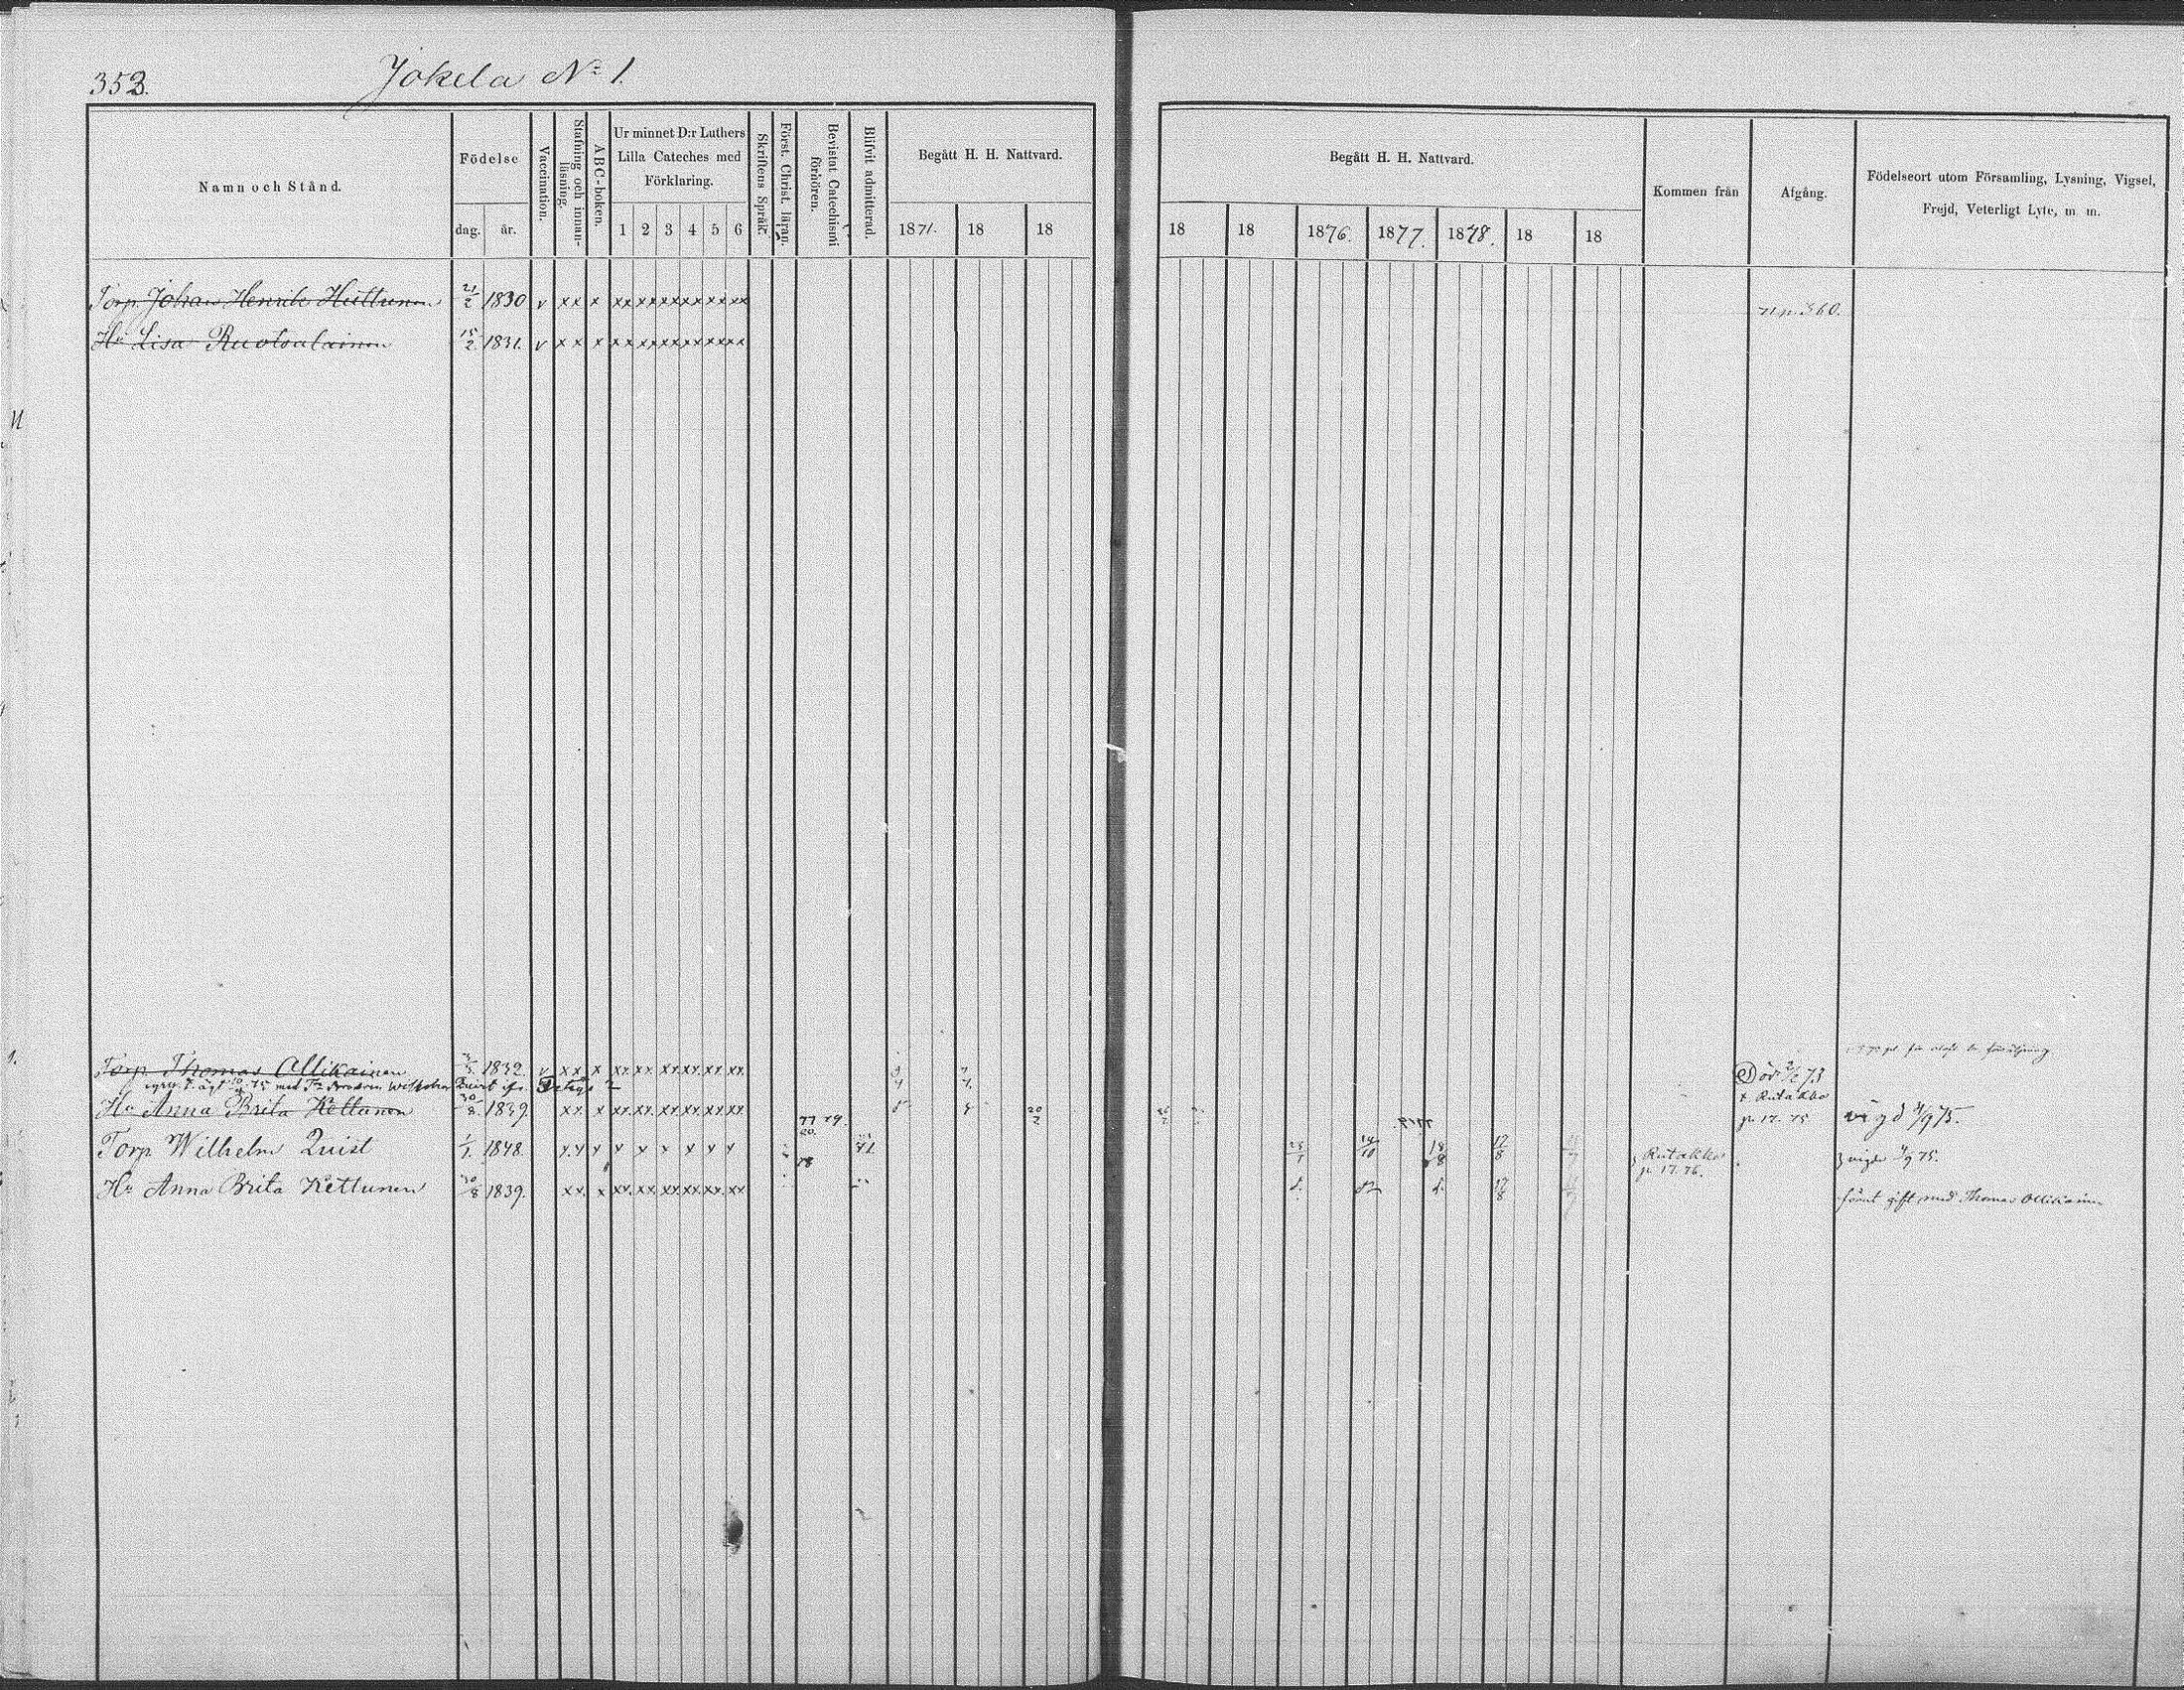 353.
Jokela No 1.
Namn och Stånd.
Födelse
dag.
år.
Vaccination.
Stafning och innanläsning.
ABC-boken.
Ur minnet D:r Luthers
Lilla Cateches med
Förklaring.
1 2 3 4 5 6
Skriftens Språk.
Först. Christ. läran.
Bevistat Catechismi förhören.
Blifvit admitterad.
Begått H. H. Nattvard.
1871. 18 18
Begått H. H. Nattvard.
18 18 1876. 1877. 1878. 18 18
Kommen från
Afgång.
Födelseort utom Församling, Lysning, Vigsel,
Frejd, Veterligt Lyte, m m.
Torp. Johan Henrik Huttunen 21/2 1830 v xx x xx xx xx xx xx xx 360.
Hu Lisa Ruotsalainen 15/2 1831. v xx x xx xx xx xx xx xx
Torp. Thomas Ollikainen 1832. v xx x xx. xx. xx. xx. xx. xx. Död 73
Hu Anna Brita Kettunen 30/8. 1839. xx. x xx. xx. xx. xx. xx. xx. 77 79. 20/2 p. 17. 75 vigd 4/9 75.
Torp. Wilhelm Quist 1/1. 1848. x x x x x x x x x 78 14/10 18/8 17/8 Rutakko p. 17. 76. vigde 4/9 75.
Hu Anna Brita Kettunen 30/8 1839. xx. x xx. xx. xx. xx. xx. xx 17/8 förut gift med Thomas Ollikainen